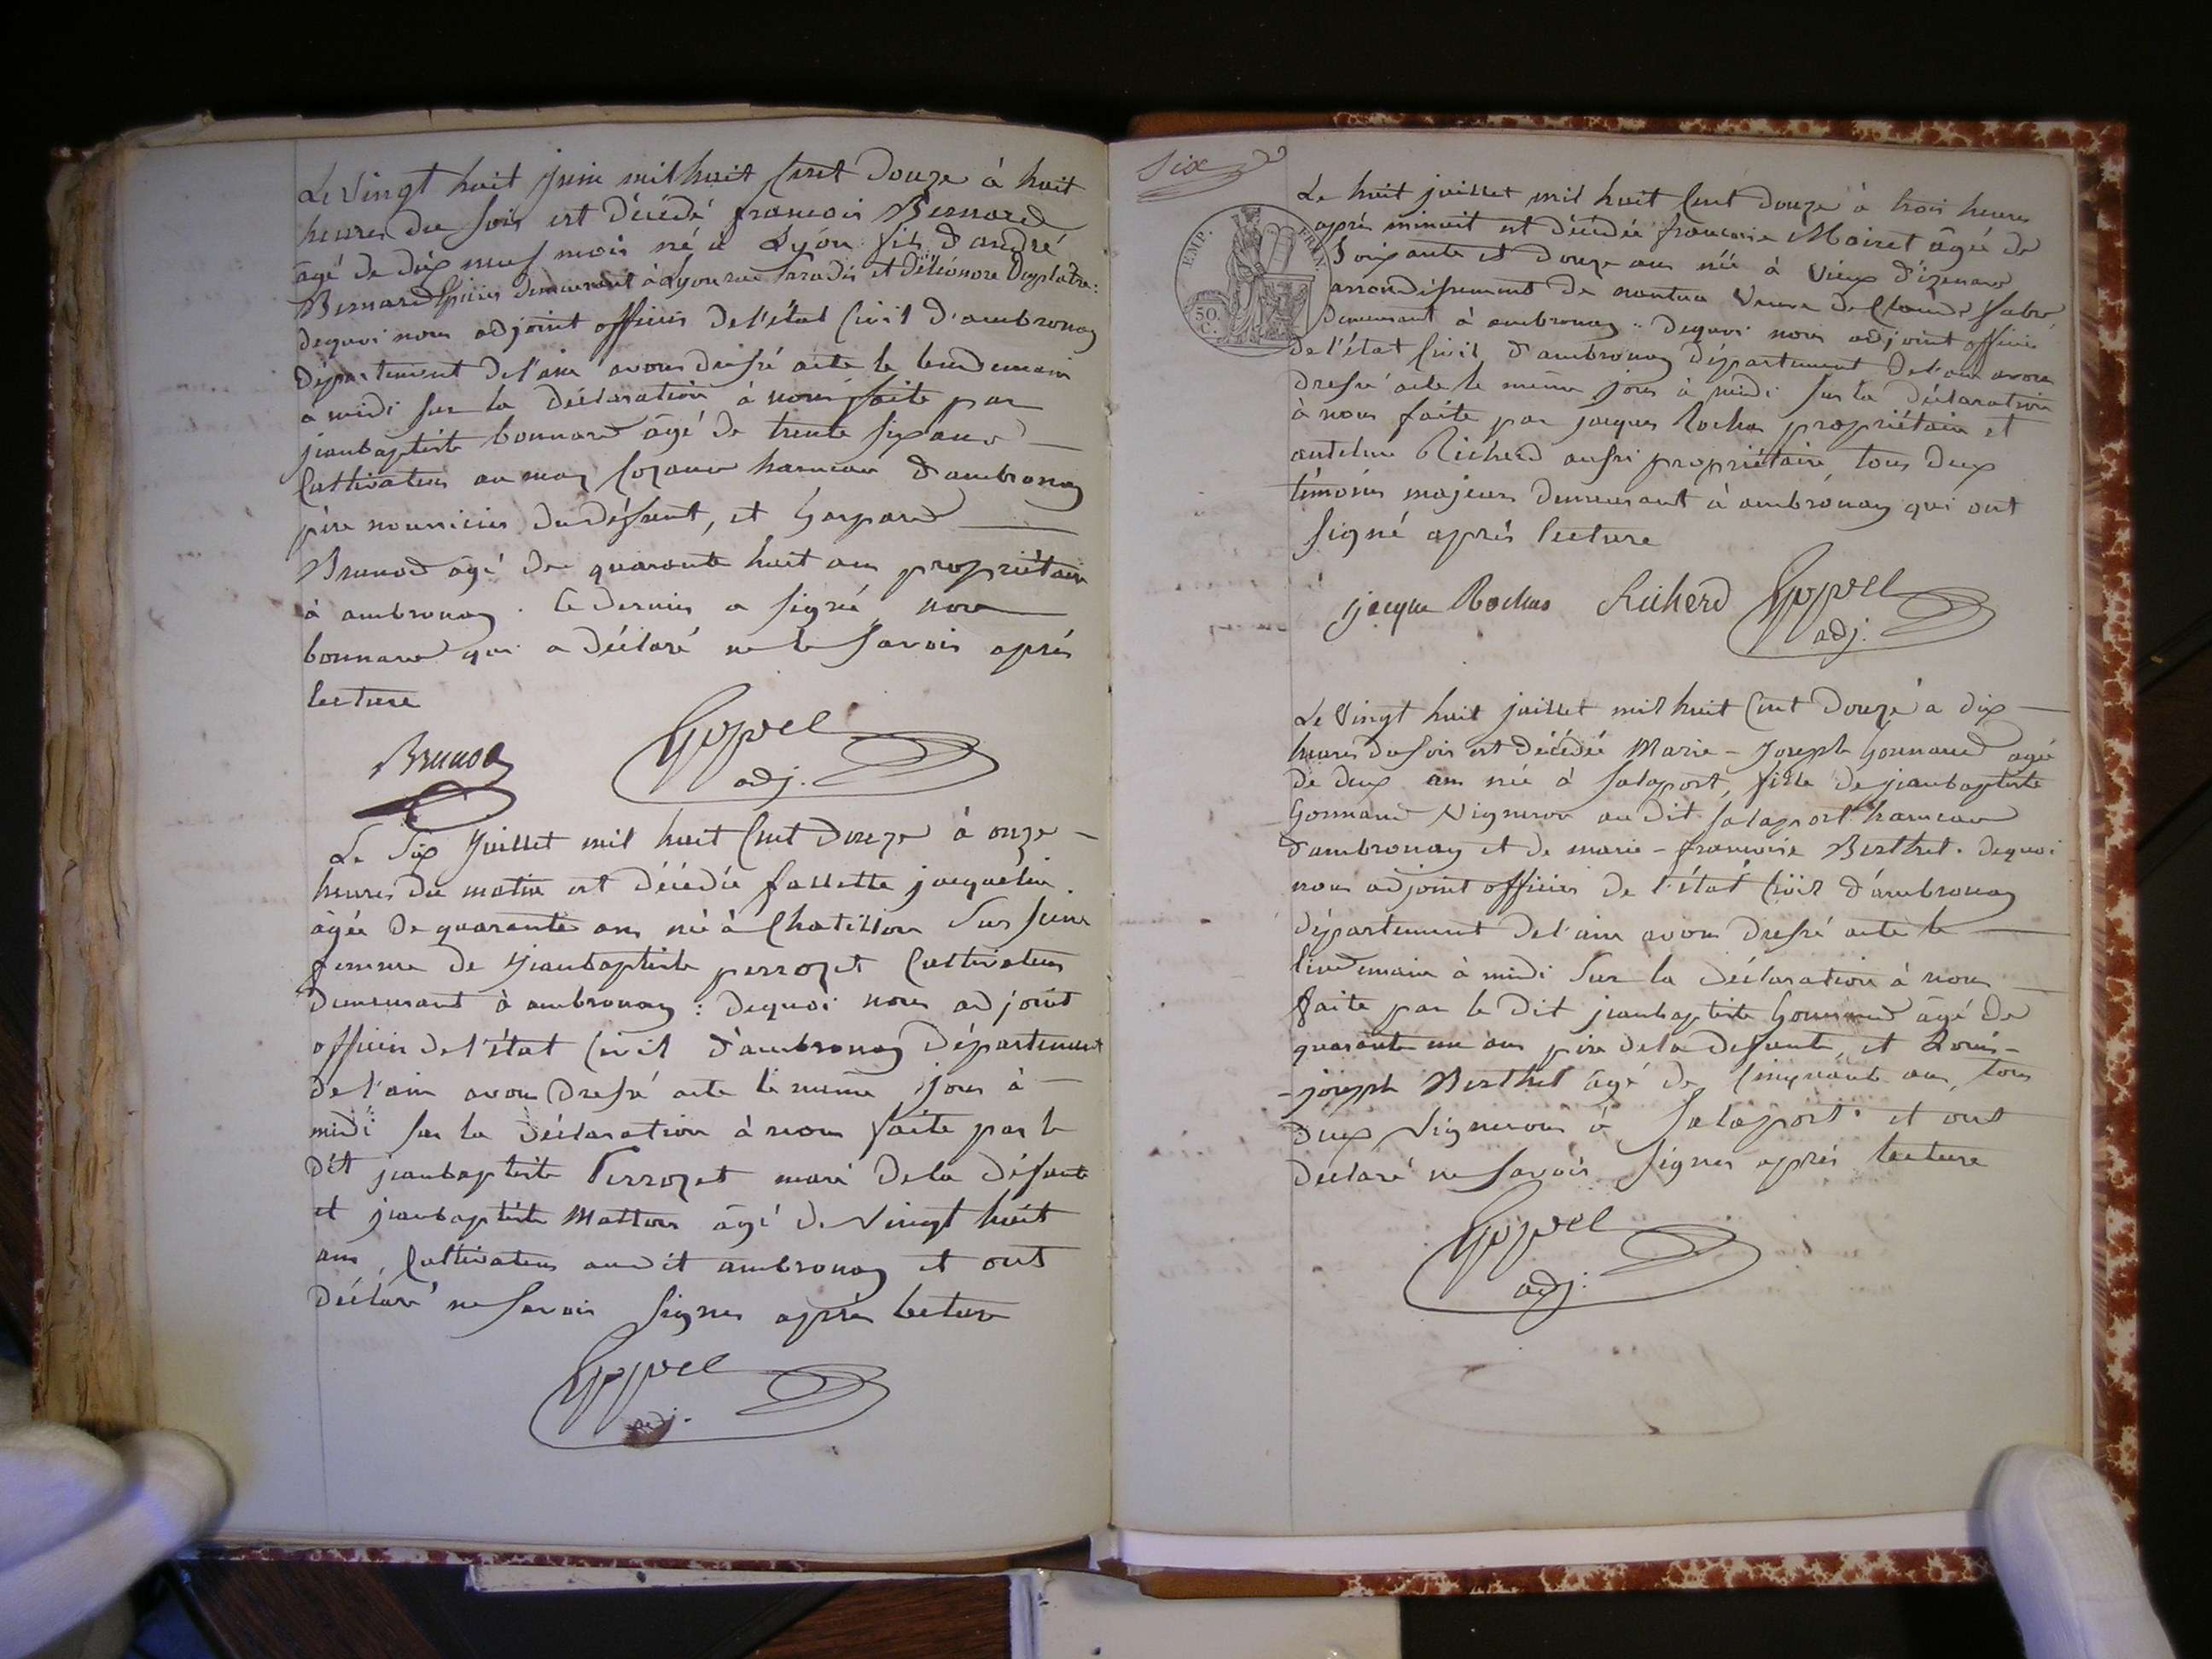 Le Vingt huit juin mil huit Cent Douze à huit
heures du soir est décédé françois Bernard
âgé de dix neuf mois né à Lyon fils d'andré
Bernard demeurant à Lyon rue et d'éléonore Duplatre:
dequoi nous adjoint officier de l'état Civil d'ambronay
département de l'ain avons dressé acte le lendemain
a midi sur la déclaration à nous faite par
jeanbaptiste bonnard âgé de trente six ans
Cultivateur au hameau d'ambronay
père nourricier du défunt, et Gaspard
Brunod âgé de quarante huit ans propriétaire
à ambronay. Ce dernier a signé, non
bonnard qui a déclaré ne le savoir après
lecture
Brunod
adj.
Le Six Juillet mil huit Cent Douze à onze
heures du matin est décédée fallette jacqueline
âgée de quarante ans née à Chatillon Sur Seine
femme de jeanbaptiste perrozet Cultivateur
demeurant à ambronay: dequoi nous adjoint
officier de l'état Civil d'ambronay Département
de l'ain avons dressé acte le même jour à
midi sur la déclaration à nous faite par le
dit jeanbaptiste Perrozet mari de la défunte
et jeanbaptiste Matton âgé de Vingt huit
ans, Cultivateurs audit ambronay et ont
déclaré ne savoir signer après lecture
adj.
Six
EMP. FRAN.
50 C.
Le huit juillet mil huit Cent douze à trois heures
après minuit est décédée françoise Moiret âgée de
Soixante et douze ans née à Vieux d'izenave
arrondissement de nantua Veuve de Claude fabre
demeurant à ambronay: dequoi nous adjoint officier
de l'état Civil d'ambronay département de l'ain avons
dressé acte le même jour à midi sur la déclaration
à nous faite par jacques Rochas propriétaire et
antelme Richerd aussi propriétaire, tous deux
témoins majeurs demeurant à ambronay qui ont
signé après lecture
jacque Rochas Richerd
adj.
Le Vingt huit juillet mil huit Cent Douze à dix
heures du soir est décédée Marie-Joseph Gonnand agée
de deux ans née à Salaport, fille de jeanbaptiste
Gonnand Vigneron au dit Salaport hameau
d'ambronay et de marie-françoise Berthet. dequoi
nous adjoint officier de l'état Civil d'ambronay
département de l'ain avons dressé acte le
lendemain à midi Sur la déclaration à nous
faite par le dit jeanbaptiste Gonnand âgé de
quarante un ans père de la defunte, et Louis-
-joseph Berthet âgé de Cinquante ans, tous
deux Vignerons à Salaport et ont
déclaré ne savoir signer après lecture
adj.